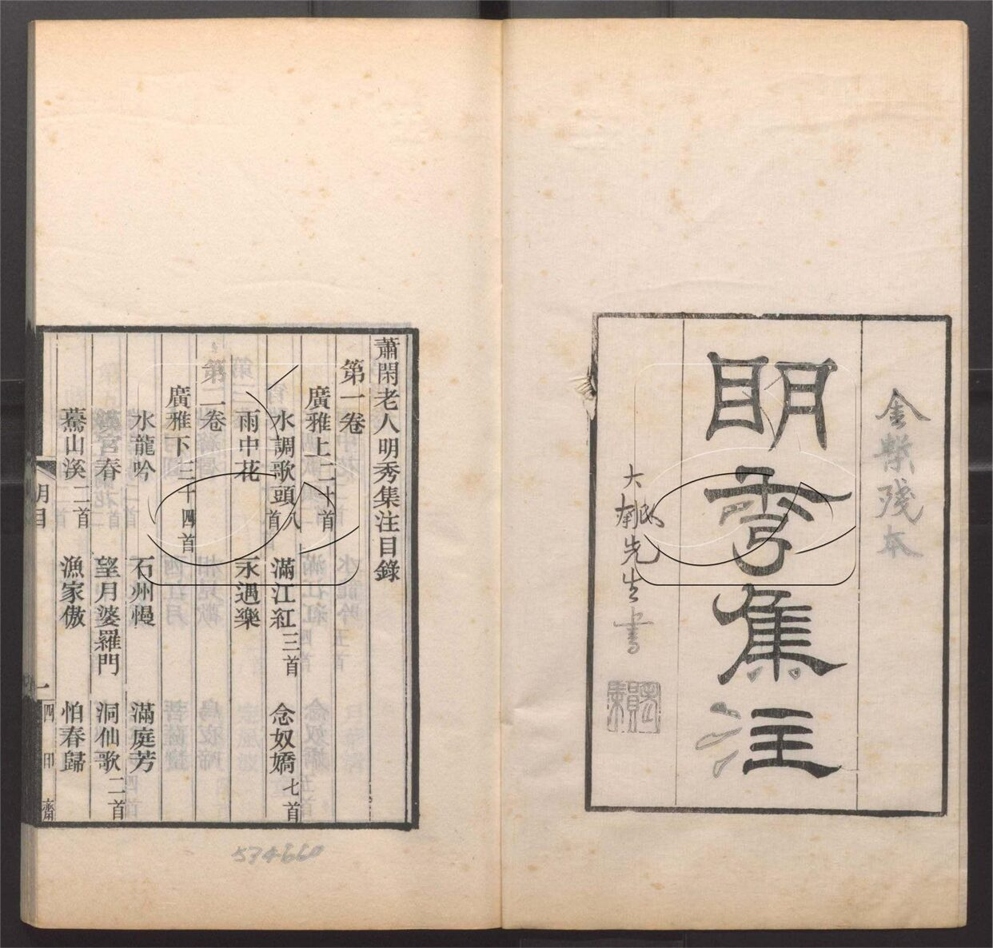 金槧殘本
明秀集注
先生書
蕭閑老人明秀集注目錄
第一卷
廣雅上二十首
水調歌頭八首 滿江紅三首 念奴嬌七首
雨中花 永遇樂
第二卷
廣雅下三十四首
水龍吟 石州慢 滿庭芳
漢宮春 望月婆羅門 洞仙歌二首
驀山溪二首 漁家傲 怕春歸
目 一 四印齋
534660